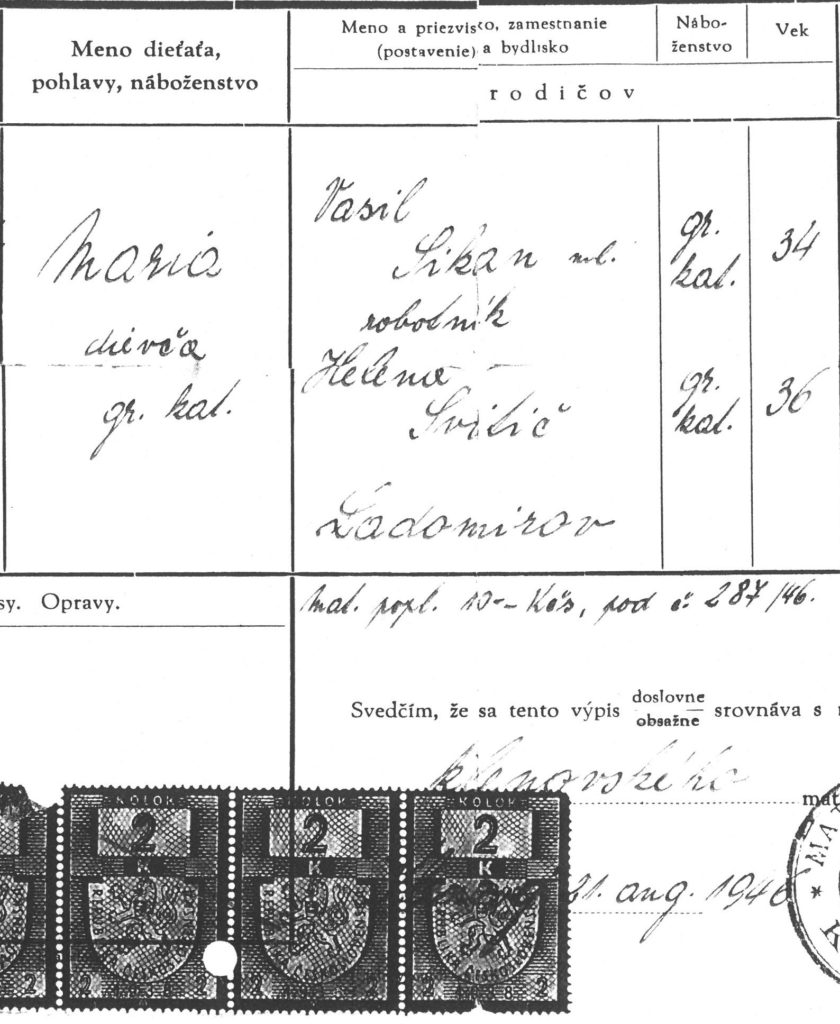 Meno dieťaťa,
pohlavy, náboženstvo
Meno a priezvisko, zamestnanie
(postavenie) a bydlisko
Nábo-
ženstvo
Vek
rodičov
Maria
dievča
gr. kat.
Vasil
Sikan ml.
robotník
gr.
kat.
34
Helena
Svitič
gr.
kat.
36
Ladomirov
sy. Opravy.
mat. popl. 10-- Kčs, pod č: 287/46.
Svedčím, že sa tento výpis doslovne
obsažne srovnáva s
mat
21. aug. 1946
KOLOK KOLOK KOLOK
2 2 2
K K K
2 2 2 2 2 2
* MA